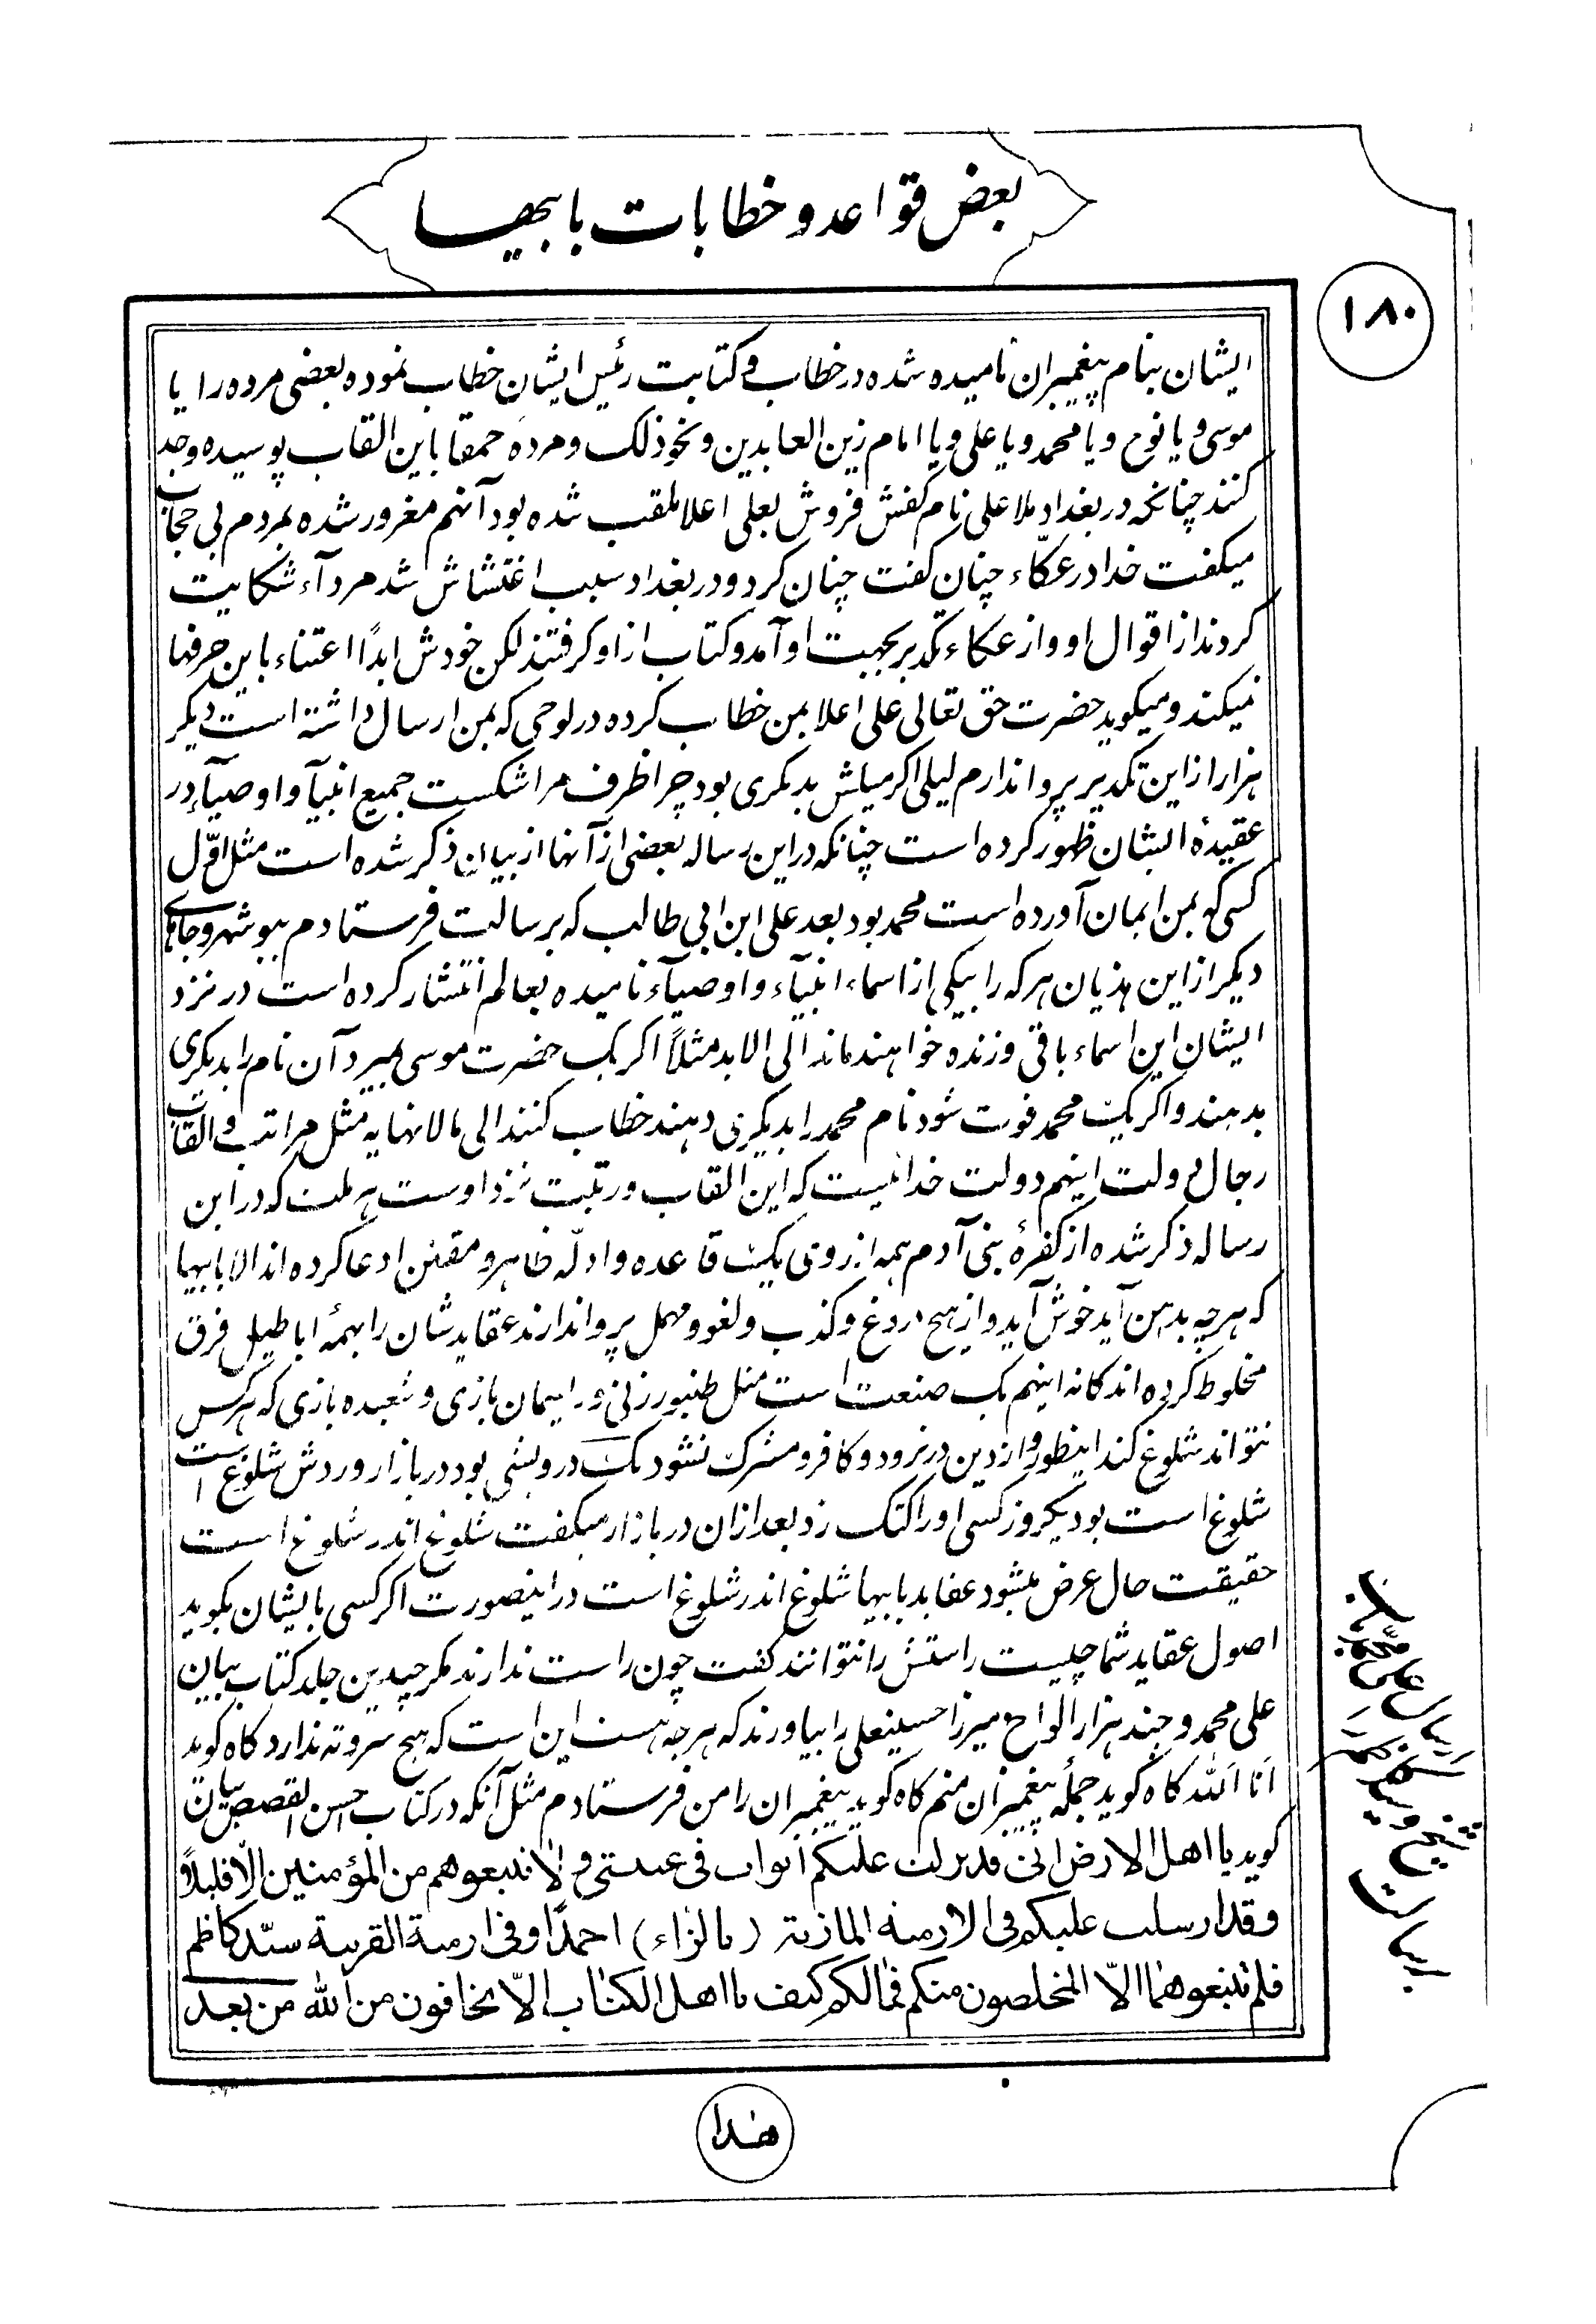 بعض قواعد و خطابات بابیها
۱۸۰
ایشان بنام پیغمبران نامیده شده در خطاب و کتابت رئیس ایشان خطاب نموده بعضی مرده را یا
موسی و یا نوح و یا محمد و یا علی و یا امام زین العابدین و نحو ذلک و مردهٔ حمقا باین القاب پوسیده وجد
کنند چنانکه در بغداد ملا علی نام کفش فروش بعلی اعلا ملقب شده بود آنهم مغرور شده بمردم بی حجاب
میکفت خدا در عکّاء چنان کفت چنان کرد و در بغداد سبب اغتشاش شد مردآء شکایت
کردند از اقوال او و از عکاء تکدیر بجهت او آمد و کتاب از او کرفتند لکن خودش ابداً اعتناء باین حرفها
نمیکند و میکوید حضرت حق تعالی علی اعلا بمن خطاب کرده در لوحی که بمن ارسال داشته است دیکر
هزار از این تکدیر پروا ندارم لیلی اکر میلش بدیکری بود چرا ظرف مرا شکست جمیع انبیآ و اوصیآء در
عقیدهٔ ایشان ظهور کرده است چنانکه در این رساله بعضی از آنها از بیان ذکر شده است مثل اوّل
کسی که بمن ایمان آورده است محمد بود بعد علی ابن ابی طالب که برسالت فرستادم ببوشهر و جاهای
دیکر از این هذیان هر که را بیکی از اسماء انبیآء و اوصیآء نامیده بعالم انتشار کرده است در نزد
ایشان این اسماء باقی و زنده خواهند ماند الی الابد مثلاً اکر یک حضرت موسی بمیرد آن نام را بدیکری
بدهند و اکر یک محمد فوت شود نام محمد را بدیکری دهند خطاب کنند الی مالانهایه مثل مراتب و القاب
رجال دولت اینهم دولت خدائیست که این القاب و رتبت نزد اوست هر ملت که در این
رساله ذکر شده از کفرهٔ بنی آدم همه از روی یک قاعده و ادلّه ظاهر و مقنن ادعا کرده اند الا بابیها
که هرچه بدهن آید خوش آید و از هیچ دروغ و کذب و لغو و مهمل پروا ندارند عقایدشان را بهمهٔ اباطیل فرق
مخلوط کرده اند کانه اینهم یک صنعت است مثل طنبور زنی و رایسمان بازی و شعبده بازی که هرکس
نتواند شلوغ کند اینطور و از دین در نرود و کافر و مشرک نشود یک درویشی بود در بازار وردش شلوغ است
شلوغ است بود یکروز کسی او را کتک زد بعد ازان در بازار میکفت شلوغ اندر شلوغ است
حقیقت حال عرض میشود عقاید بابیها شلوغ اندر شلوغ است در اینصورت اکر کسی بایشان بکوید
اصول عقاید شما چیست راستش را نتوانند کفت چون راست ندارند مکر چندین جلد کتاب بیان
علی محمد و چند هزار الواح میرزا حسینعلی را بیاورند که هرچه هست این است که هیچ سر و ته ندارد کاه کوید
انا الله کاه کوید جملهٔ پیغمبران منم کاه کوید پیغمبران را من فرستادم مثل آنکه در کتاب احسن القصص بیان
کوید یا اهل الارض انی قد نزلت علیکم ابواب فی غیبتی و لا تتبعوهم من المؤمنین الّا قلیلاً
و قد ارسلت علیکم فی الازمنه المازیة (بالزاء) احمداً و فی ازمنة القریبة سیّد کاظم
فلم تتبعوهما الّا المخلصون منکم فمالکم کیف یا اهل الکتاب الّا تخافون من الله من بعد
هذا